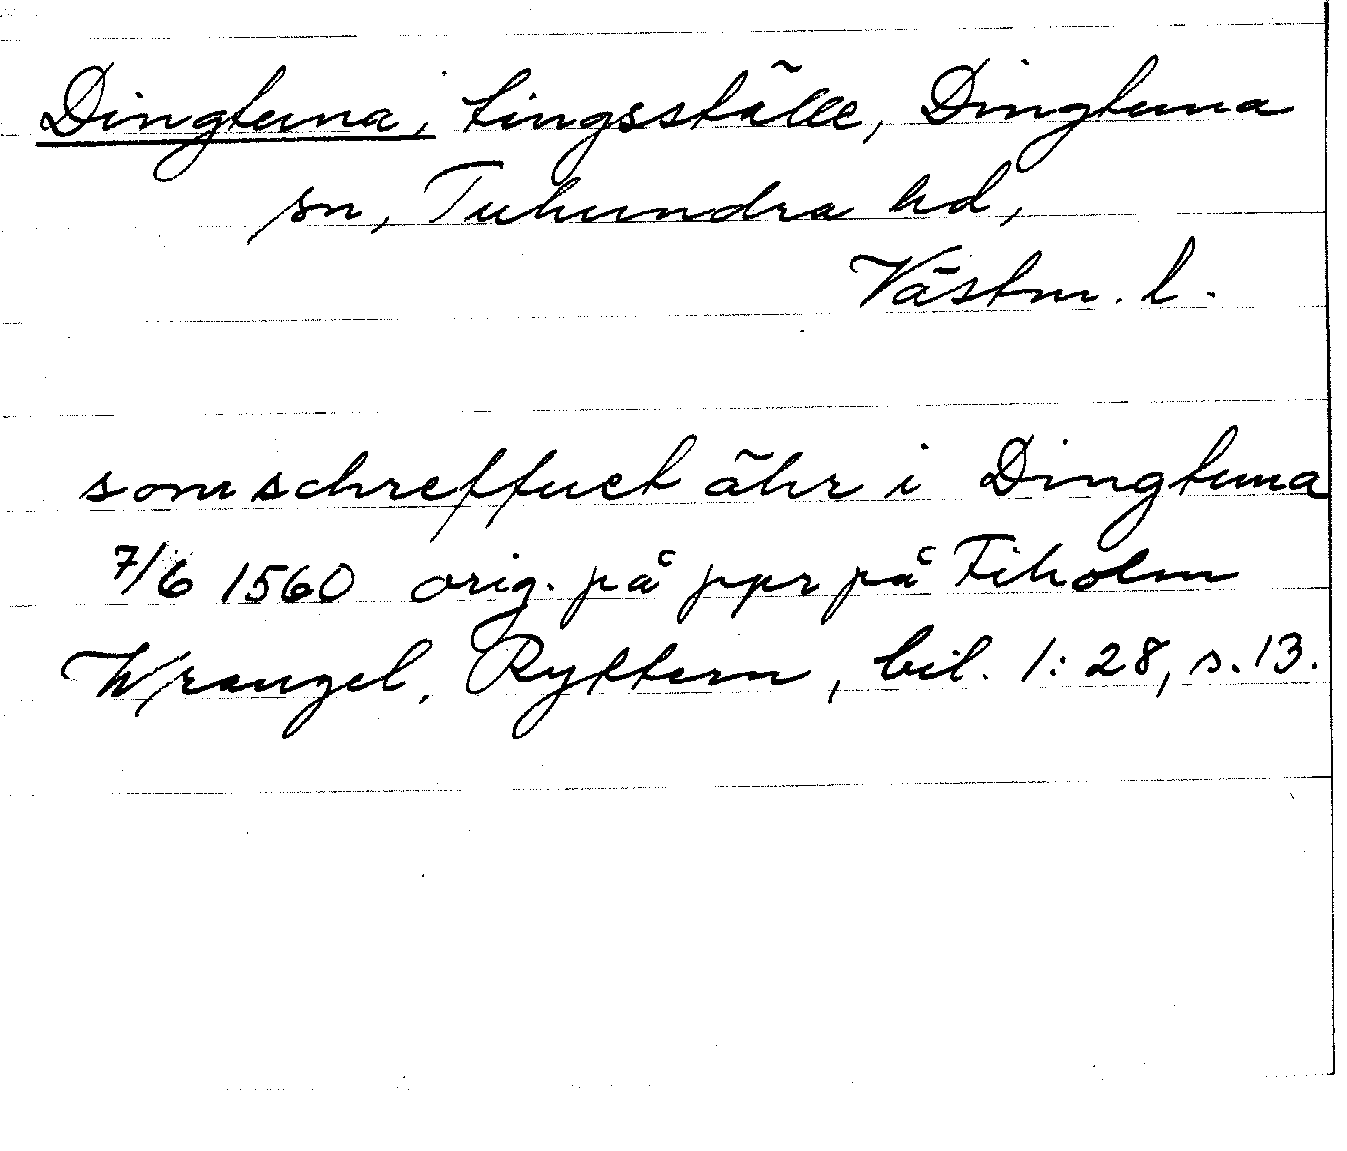 Dingtuna, tingsställe, Dingtuna
sn, Tuhundra hd,
Västm. l.
som schreffuet ähr i Dingtuna
7/6 1560 orig. på ppr på Tiholm
Wrangel, Ryttern, bil. 1:28, s. 13.